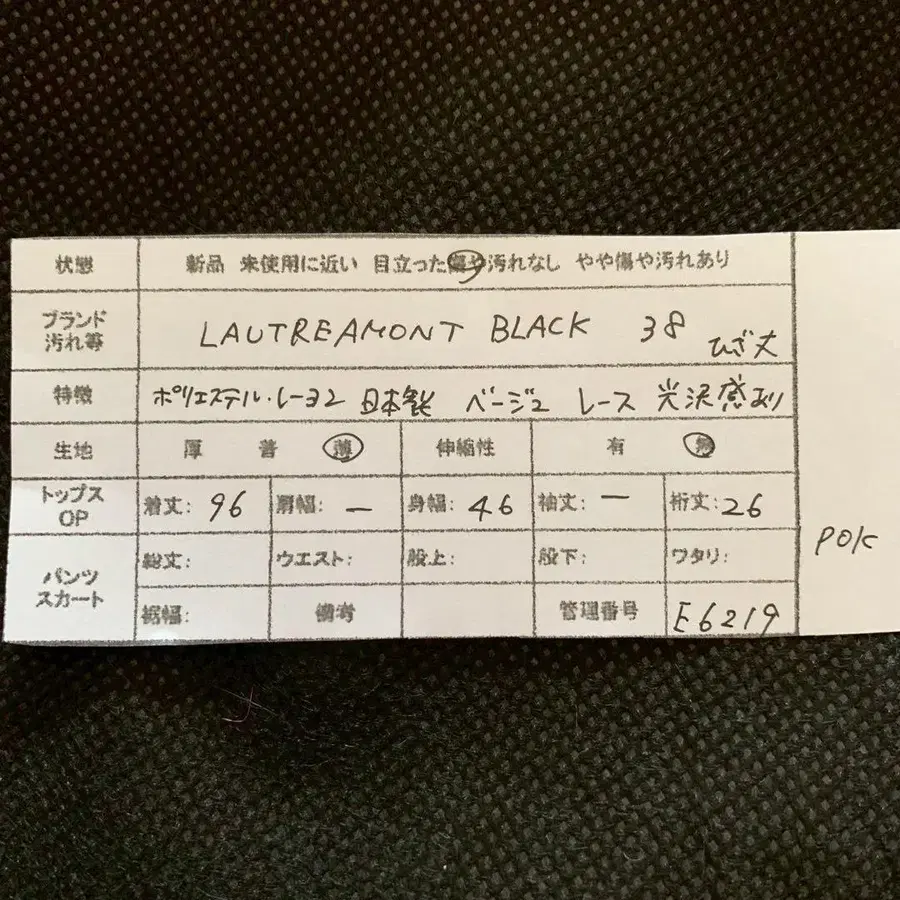 状態 新品 未使用に近い 目立った傷や汚れなし やや傷や汚れあり
ブランド 汚れ等 LAUTREAMONT BLACK 38 ひざ丈
特徴 ポリエステル・レーヨン 日本製 ベージュ レース 光沢感あり
生地 厚 普 薄 伸縮性 有 無
トップス OP 着丈: 96 肩幅: — 身幅: 46 袖丈: — 裄丈: 26
パンツ スカート 総丈: ウエスト: 股上: 股下: ワタリ:
裾幅: 備考 管理番号 E6219
POK